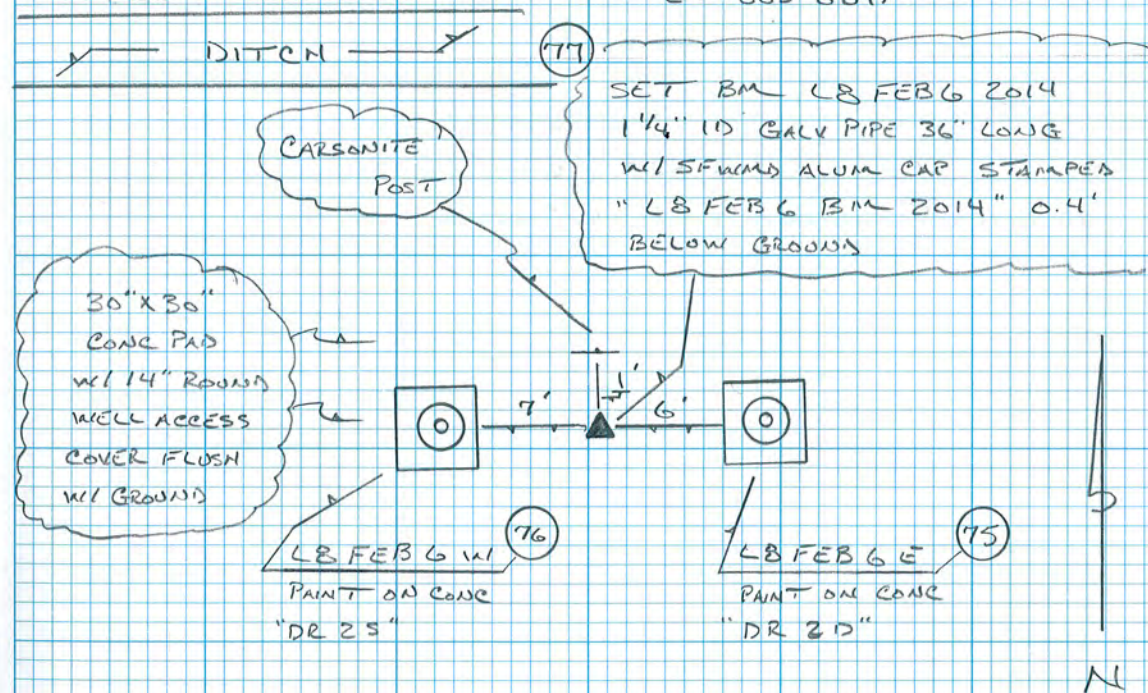 DITCH
77
SET BM L8 FEB 6 2014
1 1/4" ID GALV PIPE 36" LONG
W/ SFWMD ALUM CAP STAMPED
"L8 FEB 6 BM 2014" 0.4'
BELOW GROUND
CARSONITE
POST
30" X 30"
CONC PAD
W/ 14" ROUND
WELL ACCESS
COVER FLUSH
W/ GROUND
1'
7'
6'
76
L8 FEB 6 W
PAINT ON CONC
"DR 2S"
75
L8 FEB 6 E
PAINT ON CONC
"DR 2D"
N